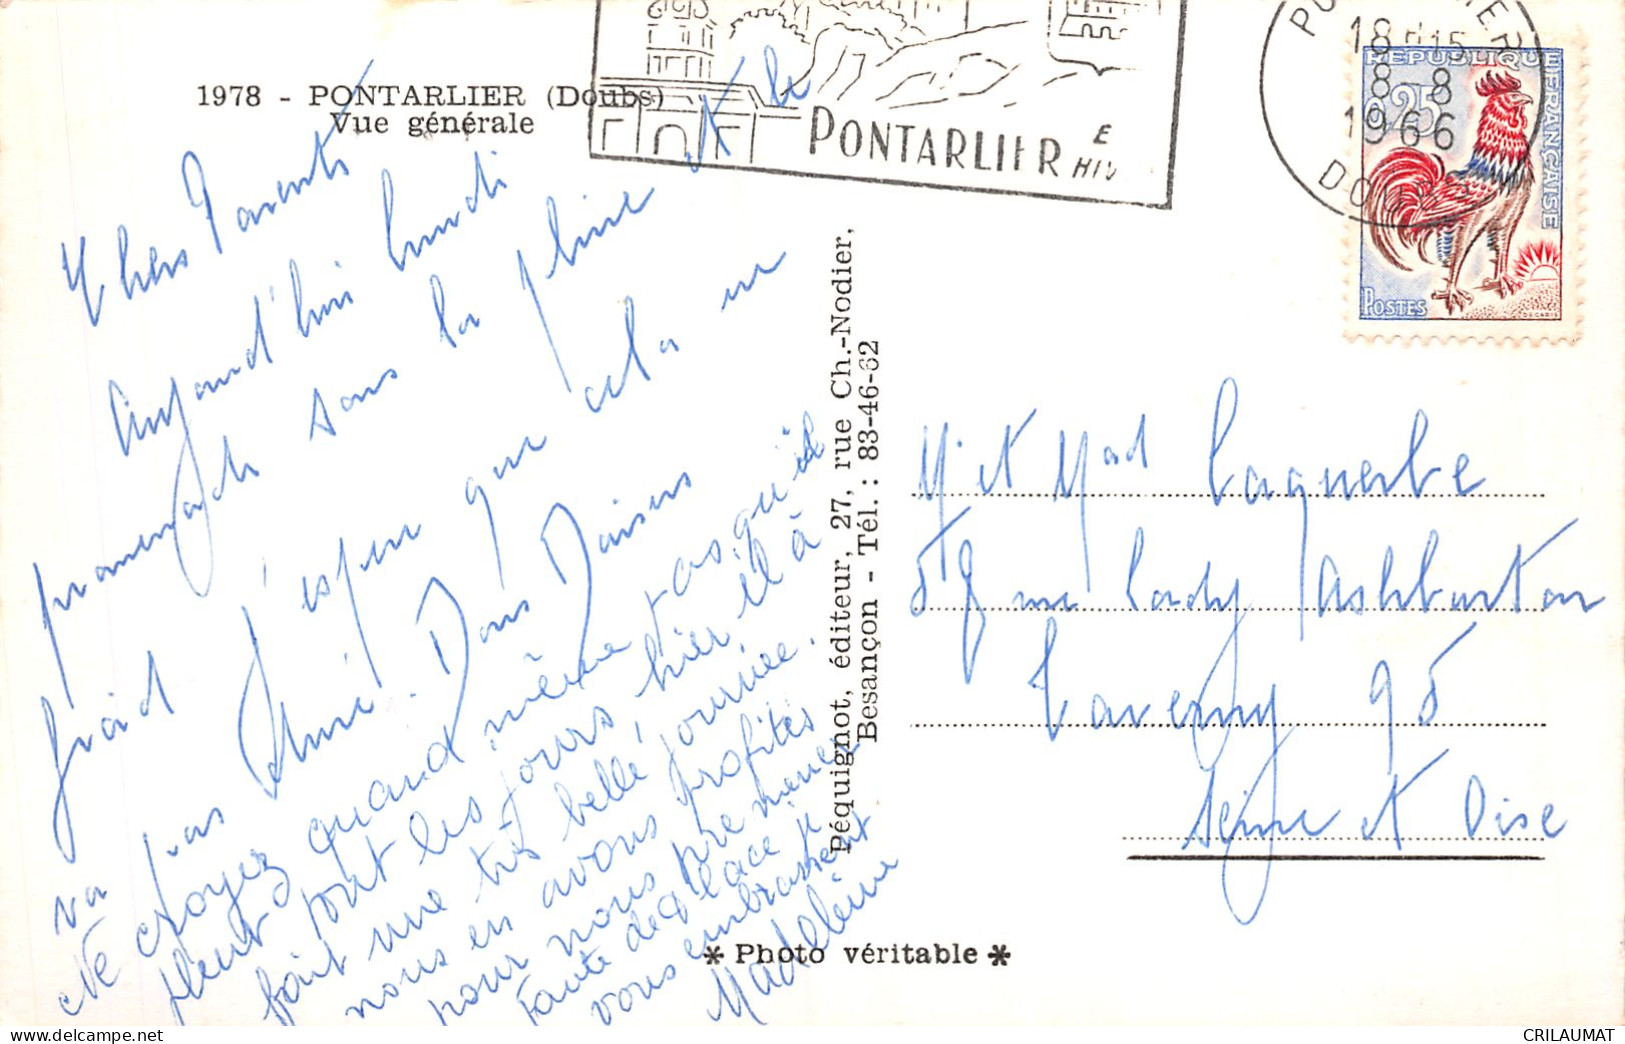 1978 - PONTARLIER (Doubs)
Vue générale
PONTARLIER
E
HIV
18 H15
8 - 8
1966
DOUBS
REPUBLIQUE FRANÇAISE
0,25
POSTES
DECARIS
Chers Parents
Aujourd'hui lundi
promenade sous la pluie et le
froid j'espère que cela ne
va pas durer. Bons Baisers
Ne croyez quand même pas qu'il
pleut tout les jours, hier il à
fait une très belle journée.
nous en avons profités
pour nous promener
faute de place je
vous embrassent
Madeleine
Péquignot, éditeur, 27, rue Ch.-Nodier,
Besançon - Tél. : 83-46-62
* Photo véritable *
M et Mad Laguerbe
58 rue Lady Ashburton
Taverny 95
Seine et Oise
CRILAUMAT